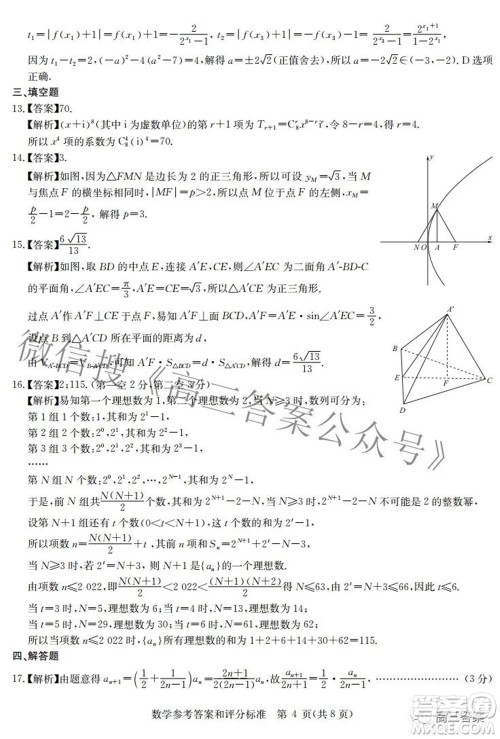 t₁=|f(x₁)+1|=f(x₁)+1=-2/(2^{x₁}-1), t₂=|f(x₁)+1|=f(x₁)+1=-2/(2^{-x₁}-1)=2^{x₁+1}/(1-2^{x₁}).
因为 t₁-t₂=2,(-a)²-4(a²-7)=4,解得 a=±2√2(正值舍去),所以 a=-2√2∈(-3,-2).D 选项
正确.
三、填空题
13.【答案】70.
【解析】(x+i)⁸(其中 i 为虚数单位)的第 r+1 项为 T_{r+1}=C₈^r x^{8-r} i^r,令 8-r=4,得 r=4.
所以 x⁴ 项的系数为 C₈⁴(i)⁴=70.
14.【答案】3.
【解析】如图,因为△FMN 是边长为 2 的正三角形,所以可设 y_M=√3,当 M
与焦点 F 的横坐标相同时,|MF|=p>2,结合图及已知得,x_M=
p/2-1=2-p/2,解得 p=3.
y
M
N O A F x
15.【答案】6√13/13.
【解析】如图,取 BD 的中点 E,连接 A′E,CE,则∠A′EC 为二面角 A′-BD-C
的平面角,∠A′EC=π/3,A′E=EC=√3,
过点 A′作 A′F⊥CE 于点 F,易知 A′F⊥面 BCD,A′F=A′E·sin∠A′EC=3/2,
设点 B 到△A′CD 所在平面的距离为 d,
由 V=V,可知 A′F·S_{△BCD}=d·S_{△A′CD},解得 d=6√13/13.
A′
B
E F C
D
16.【答案】2;115.(第一空 2 分,第二空 3 分)
【解析】易知第一个理想数为 1,第二个理想数为 2,当 N≥3 时,数列可分为:
第 1 组 1 个数:2⁰,和为 2¹-1,
第 2 组 2 个数:2⁰,2¹,和为 2²-1,
第 3 组 3 个数:2⁰,2¹,2²,和为 2³-1,
……
第 N 组 N 个数:2⁰,2¹,…,2^{N-1},和为 2^N-1,
于是,前 N 组共 N(N+1)/2 个数,其和为 2^{N+1}-2-N,当 N≥3 时,2^{N+1}-2-N 不可能是 2 的整数幂,
设第 N+1 组还有 t 个数(0<t<N+1),其和为 2^t-1,
所以项数 n=N(N+1)/2+t,其前 n 项和 S_n=2^{N+1}-2-N+2^t-1,
当 N≥3 时,2^t-1=N+2 时,n 是{a_n}的一个理想数.
由项数 n≤2 022,即 N(N+1)/2<2 022<(N+1)(N+2)/2 得 N≤63,由 2^t≤66,得 t≤6,
当 t=3 时,N=5,n=18,是一个理想数;当 t=4 时,N=13,n=95,是一个理想数;
当 t=5 时,N=29,n=440,是一个理想数;当 t=6 时,N=61,n=1 897,是一个理想数.
所以当项数 n≤2 022 时,{a_n}所有理想数的序数和为 1+2+6+14+30+62=115.
四、解答题
17.【解析】由题意得 a_{n+1}=(1/2+1/(2n))a_n=(n+1)/(2n)a_n.故 a_{n+1}/(n+1)=1/2·a_n/n.……(3 分)
数学参考答案和评分标准 第 4 页(共 8 页)
微信搜《高三答案公众号》
高三答案